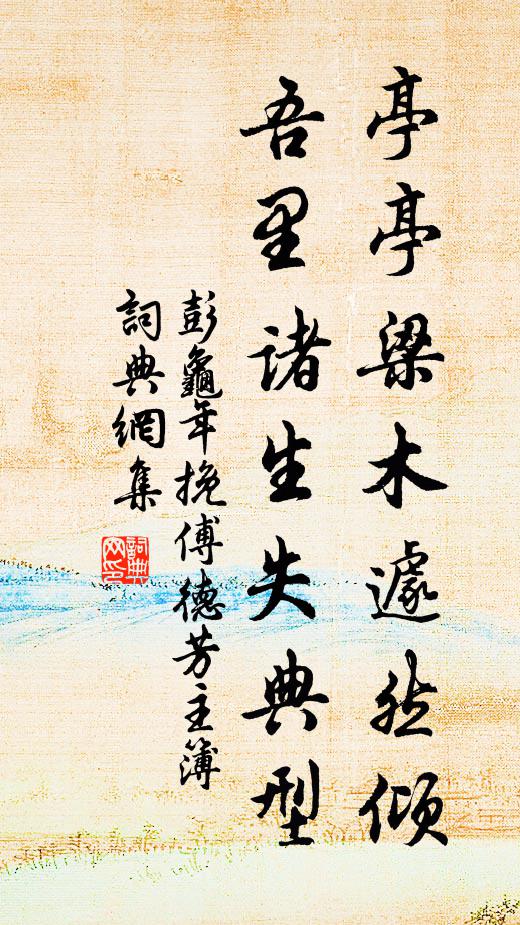 亭亭梁木遽然傾
吾里諸生失典型
彭龜年挽傅德芳主簿
詞典網集
詞典网印